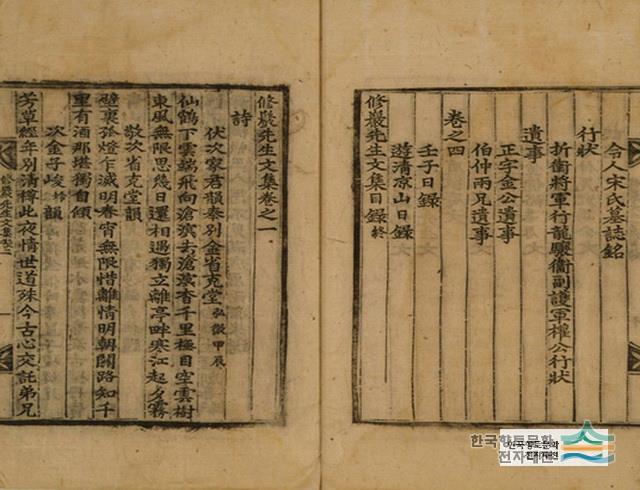 令人宋氏墓誌銘
行狀
折衝將軍行龍驤衛副護軍權公行狀
遺事
正字金公遺事
伯仲兩兄遺事
卷之四
壬子日錄
遊清凉山日錄
修巖先生文集目錄終
修巖先生文集卷之一
詩
伏次家君韻奉別金省克堂 弘微 甲辰
仙鶴下雲端飛向滄濱去滄濱杳千里極目空雲樹
東風無限思幾日還相遇獨立離亭畔寒江起夕霧
敬次省克堂韻
壁裏孤燈乍滅明春宵無限惜離情明朝關路知千
里有酒那堪獨自傾
次金子峻 韻
芳草經年別清樽此夜情世道殊今古心交託弟兄
修巖先生文集卷之一
한국향토문화
전자대전
한국향토문화
전자대전